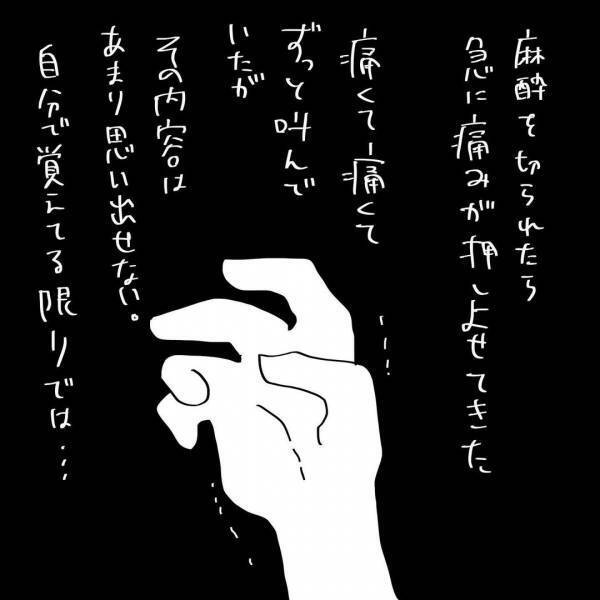 麻酔を切られたら
急に痛みが押しよせてきた
痛くてー痛くて
ずっと叫んで
いたが
その内容は
あまり思い出せない。
自分で覚えてる限りでは…